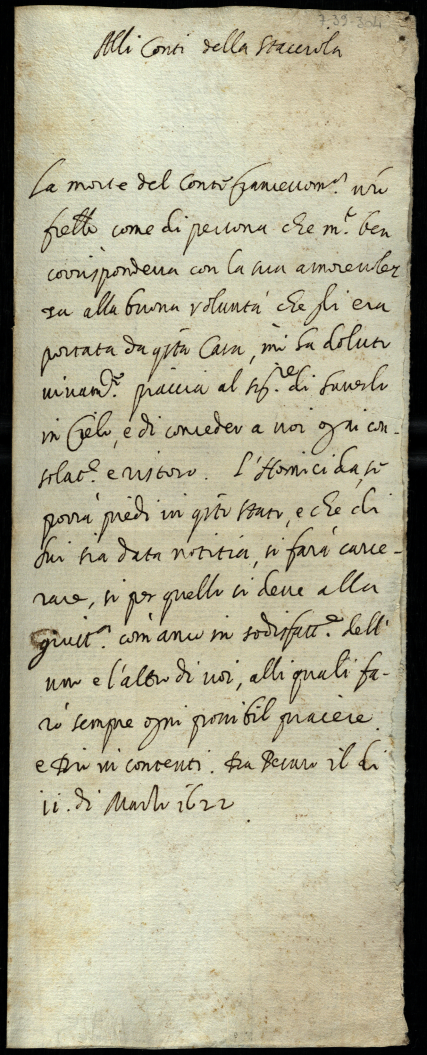 7-39-364
Alli Conti della Staccivola
La morte del Conte Francescom.ª vrõ
frello come di persona che m.to ben
corrispondeua con la sua amoreuolez
za alla buona voluntà che gli era
portata da q̃sta Casa, mi ha doluto
viuam.te piaccia al sig.re di hauerlo
in Cielo, e di conceder a uoi ogni con-
solat.e e ristoro. L'Homicida, se
porrà piedi in q̃sto stato, e che di
lui sia data notitia, si farà carce-
rare, si per quello si deue alla
giust.ª com'anco in sodisfatt.e dell'
uno e l'altro di uoi, alli quali fa-
rò sempre ogni possibil piacere
e Dio vi contenti. Da Pesaro il di
ii. di Marzo 1622